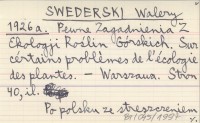 SWEDERSKI Walery
1926a. Pewne Zagadnienia Z
Ekologji Roślin Górskich. Sur
certains problèmes de l'écologie
des plantes. — Warszawa. Stron
40, il.
Po polsku ze streszczeniem